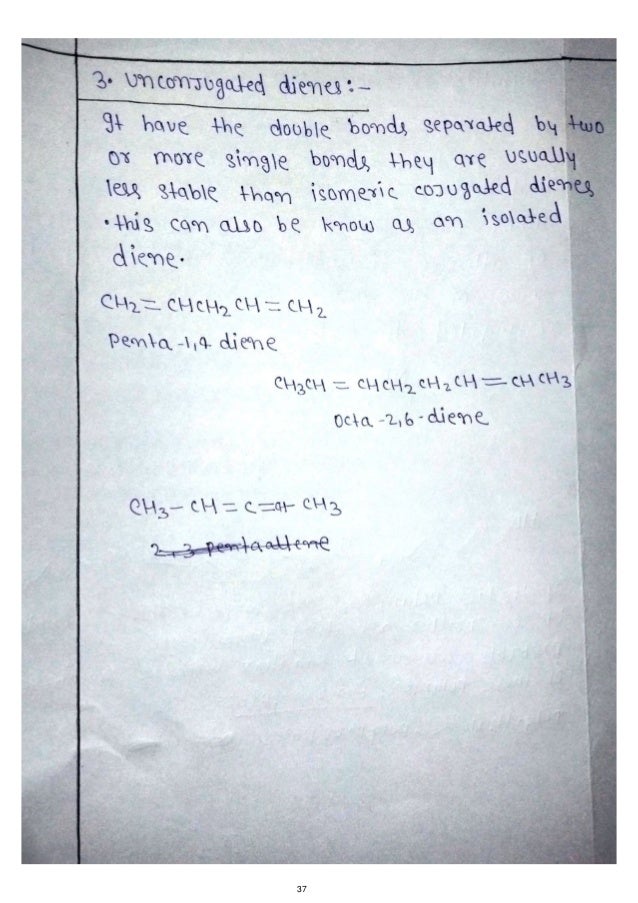 3. Unconjugated dienes:-
It have the double bonds separated by two
or more single bonds they are usually
less stable than isomeric cojugated dienes
• this can also be know as an isolated
diene.
CH2=CHCH2CH=CH2
Penta-1,4 diene
CH3CH=CHCH2CH2CH=CHCH3
Octa-2,6-diene
CH3-CH=C=CH-CH3
2,3 pentaallene
37